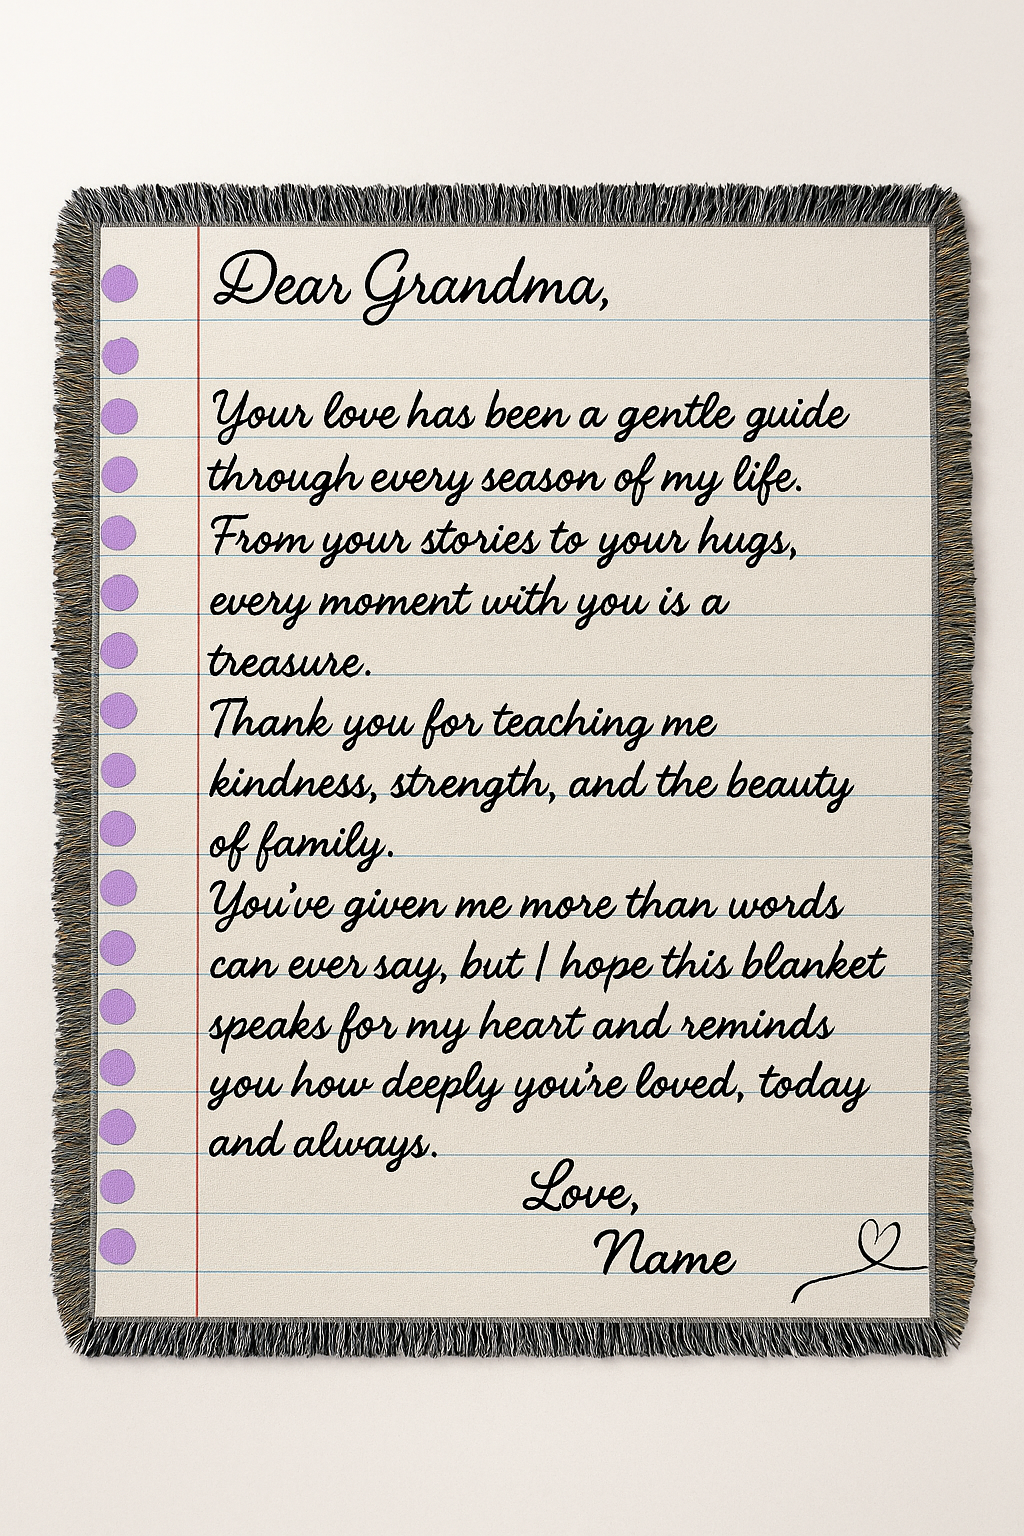 Dear Grandma,
Your love has been a gentle guide
through every season of my life.
From your stories to your hugs,
every moment with you is a
treasure.
Thank you for teaching me
kindness, strength, and the beauty
of family.
You've given me more than words
can ever say, but I hope this blanket
speaks for my heart and reminds
you how deeply you're loved, today
and always.
Love,
Name